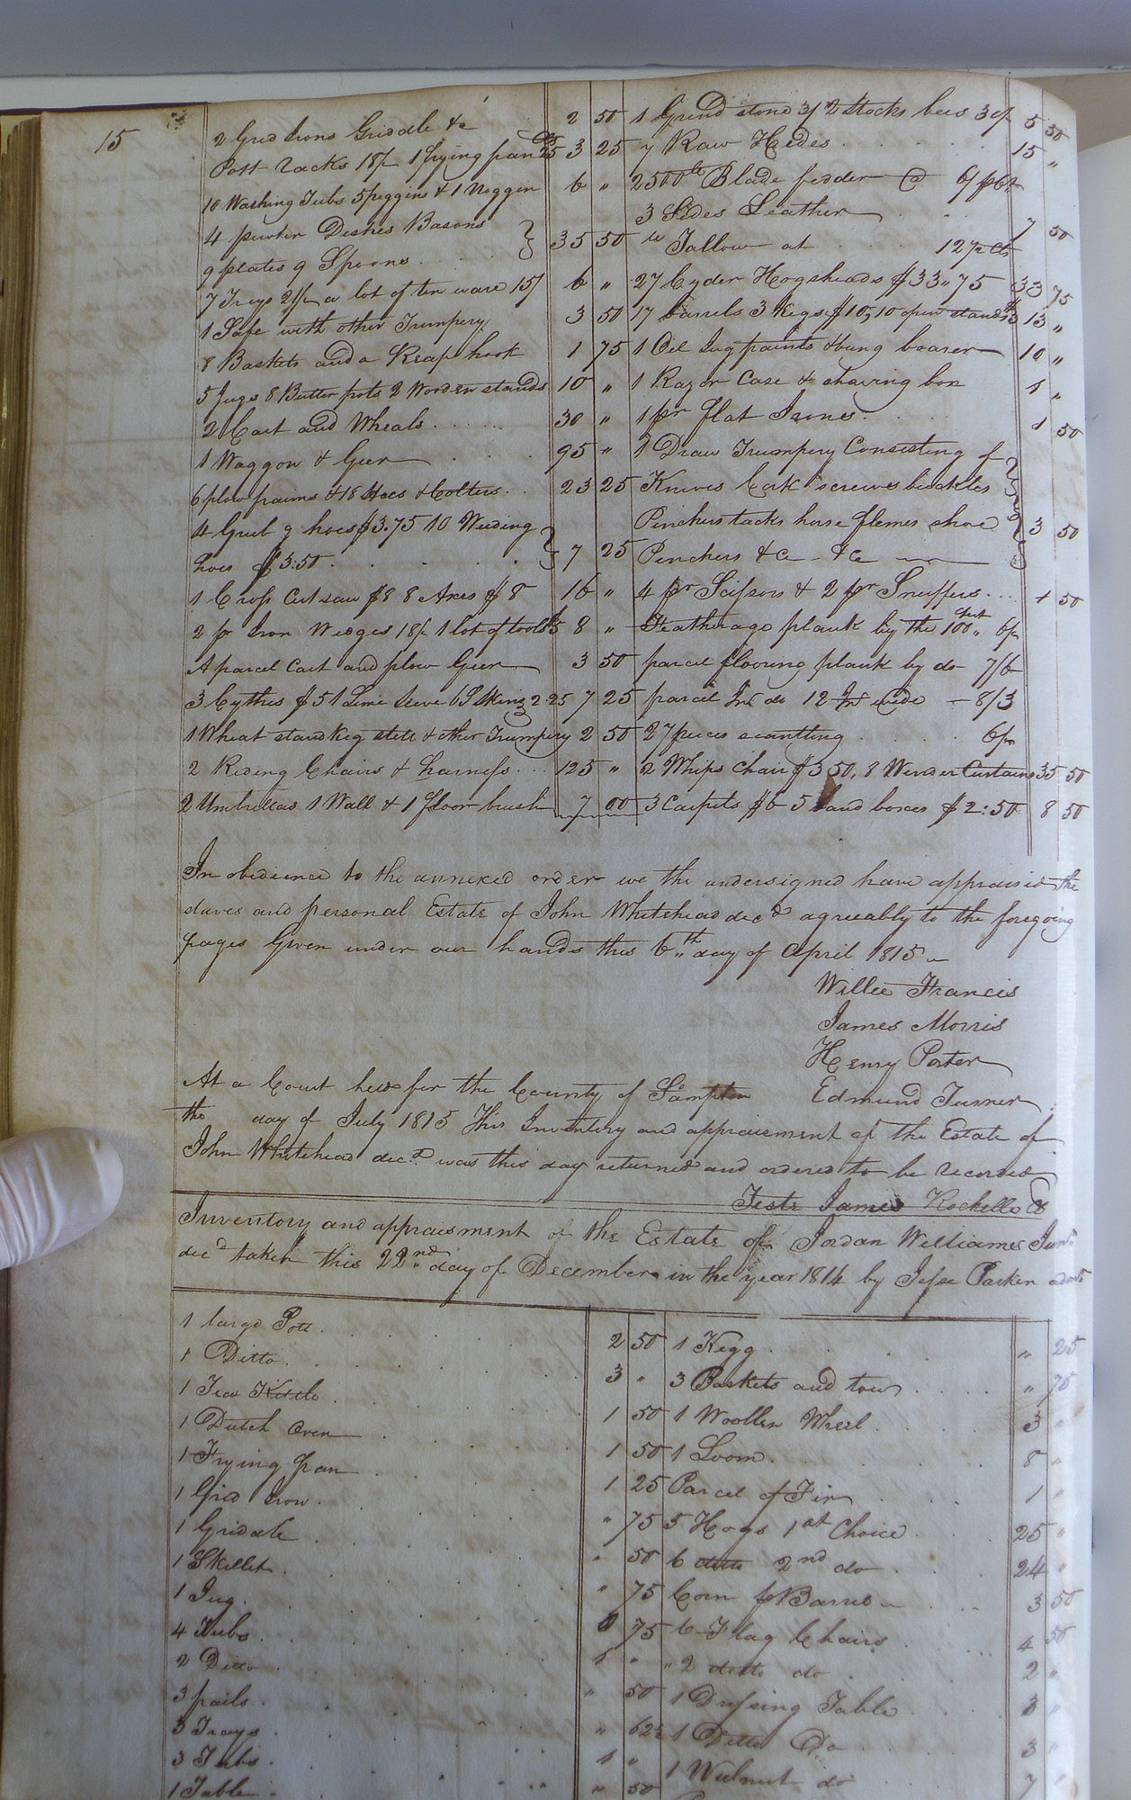 15
2 Grid Irons Griddle &c 2 50
Pott racks 18/ 1 frying pan 3 25
10 Washing Tubs 5 piggins & 1 Noggin 6 "
4 pewter Dishes Basons
9 plates 9 Spoons 35 50
7 Trays 21/ a lot of tin ware 15/ 6 "
1 Safe with other Trumpery 3 50
8 Baskets and a Reap hook 1 75
5 Jugs 8 Butter pots 2 Wooden stands 10 "
2 Cart and Wheals 30 "
1 Waggon & Geer 95 "
6 plow fraims & 18 Hoes & Colters 23 25
4 Grub g hoes $3.75 10 Weeding
hoes $3:50 7 25
1 Cross Cut saw $8 8 Axes $8 16 "
2 pr Iron Wedges 18/ 1 lot of tools $5 8 "
A parcel Cart and plow Geer 3 50
3 Cythes $5 1 Lime sieve 6 Skins 2.25 7 25
1 Wheat stand Keg still & other Trumpery 2 50
2 Riding Chairs & harness 125 "
2 Umbrillas 1 Wall & 1 floor brush 7 00
1 Grind stone 3/ 2 Stocks bees 30/ 5 50
7 Raw Hides 15 "
2500 lb Blade fodder @ 6/
3 Sides Leather 7 50
Tallow at 12½ Cts
27 Cyder Hogsheads $33.75 33 75
17 barrels 3 Kegs $10, 10 open stands $3 13 "
1 Oil Jug paints & bung boarer 10 "
1 Razor Case & shaving box 1 "
1 pr flat Irons 1 50
1 Draw Trumpery Consisting of
Knives Cork screws buckles
Pinchers tacks horse flemes shoe 3 50
Penchers &c &c
4 pr Scissors & 2 pr Snuffers 1 50
Featherage plank by the 100 feet 6/
parcel flooring plank by do 7/6
parcel In do 12 In wide 8/3
27 pieces scantling 6/
2 Whips Chair $3 50, 8 Winder Curtains 35 50
3 Carpets $6 5 band boxes $2:50 8 50
In obedience to the annexed order we the undersigned have appraised the
slaves and personal Estate of John Whitehead decd agreeably to the foregoing
pages Given under our hands this 6th day of April 1815
Willie Francis
James Morris
Henry Porter
Edmund Turner
At a Court held for the County of Sampton
the day of July 1815 This Inventory and appraisement of the Estate of
John Whitehead decd was this day returned and ordered to be recorded
Teste James Rochelle C
Inventory and appraisment of the Estate of Jordan Williames Junr
decd taken this 22nd day of December in the year 1814 by Jesse Parker
1 large Pott 2 50
1 Ditto 3 "
1 Tea Kittle 1 50
1 Dutch Oven 1 50
1 Frying pan 1 25
1 Grid Iron " 75
1 Gridale " 50
1 Skillet " 75
1 Jug 75
4 Tubs 1 "
2 Ditto " 50
3 pails " 62½
3 Trays 1 "
3 Tubs " 50
1 Table
1 Kegg " 25
3 Baskets and tow " 75
1 Woollen Wheel 3 "
1 Loom 8 "
Parcel of Fir 1 "
5 Hogs 1st Choice 25 "
6 ditto 2nd do 24 "
Corn p Barrel 3 50
6 Flag Chairs 4 50
" 2 ditto do 2 "
1 Dressing Table 3 "
1 Ditto Do 3 "
1 Walnut do 7 "